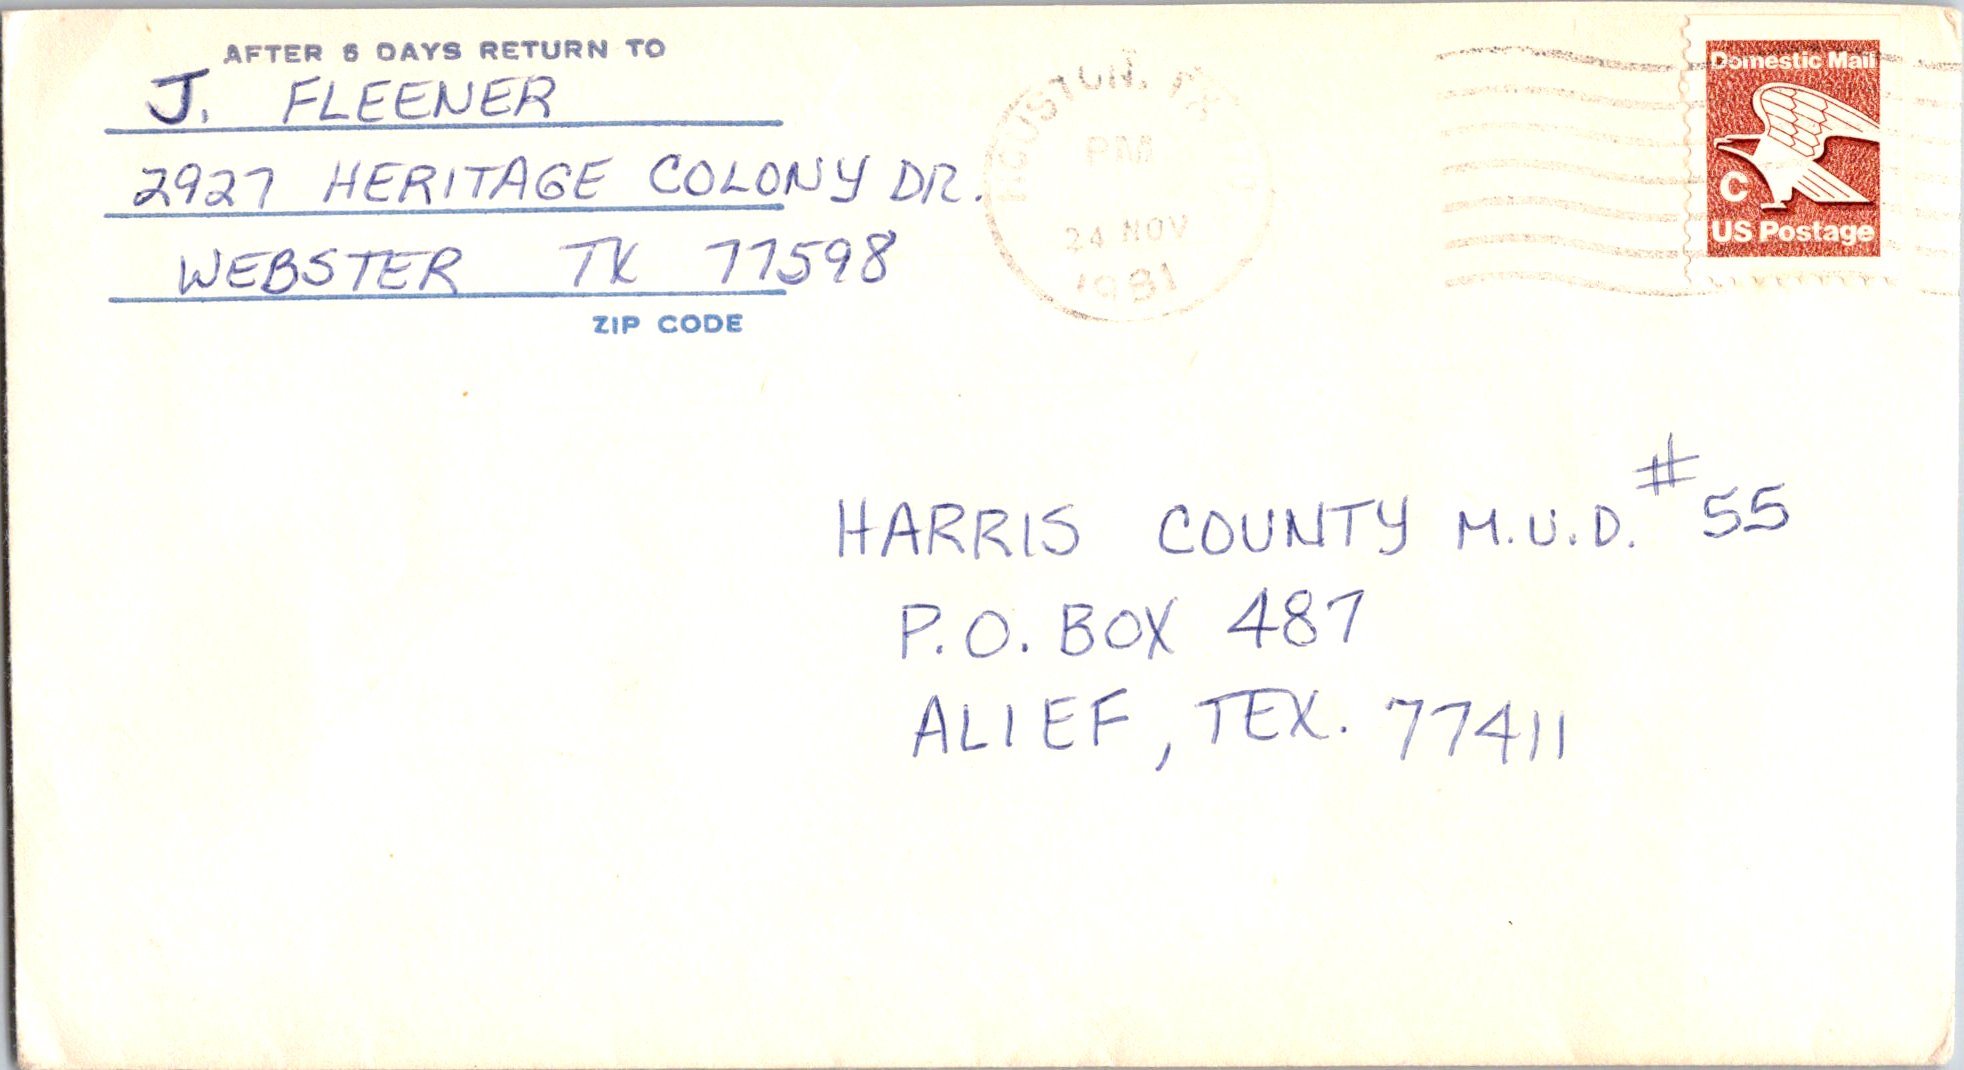 AFTER 5 DAYS RETURN TO
J. FLEENER
2927 HERITAGE COLONY DR.
WEBSTER TX 77598
ZIP CODE
HOUSTON, TX
PM
24 NOV
1981
Domestic Mail
C
US Postage
HARRIS COUNTY M.U.D. # 55
P.O. BOX 487
ALIEF, TEX. 77411